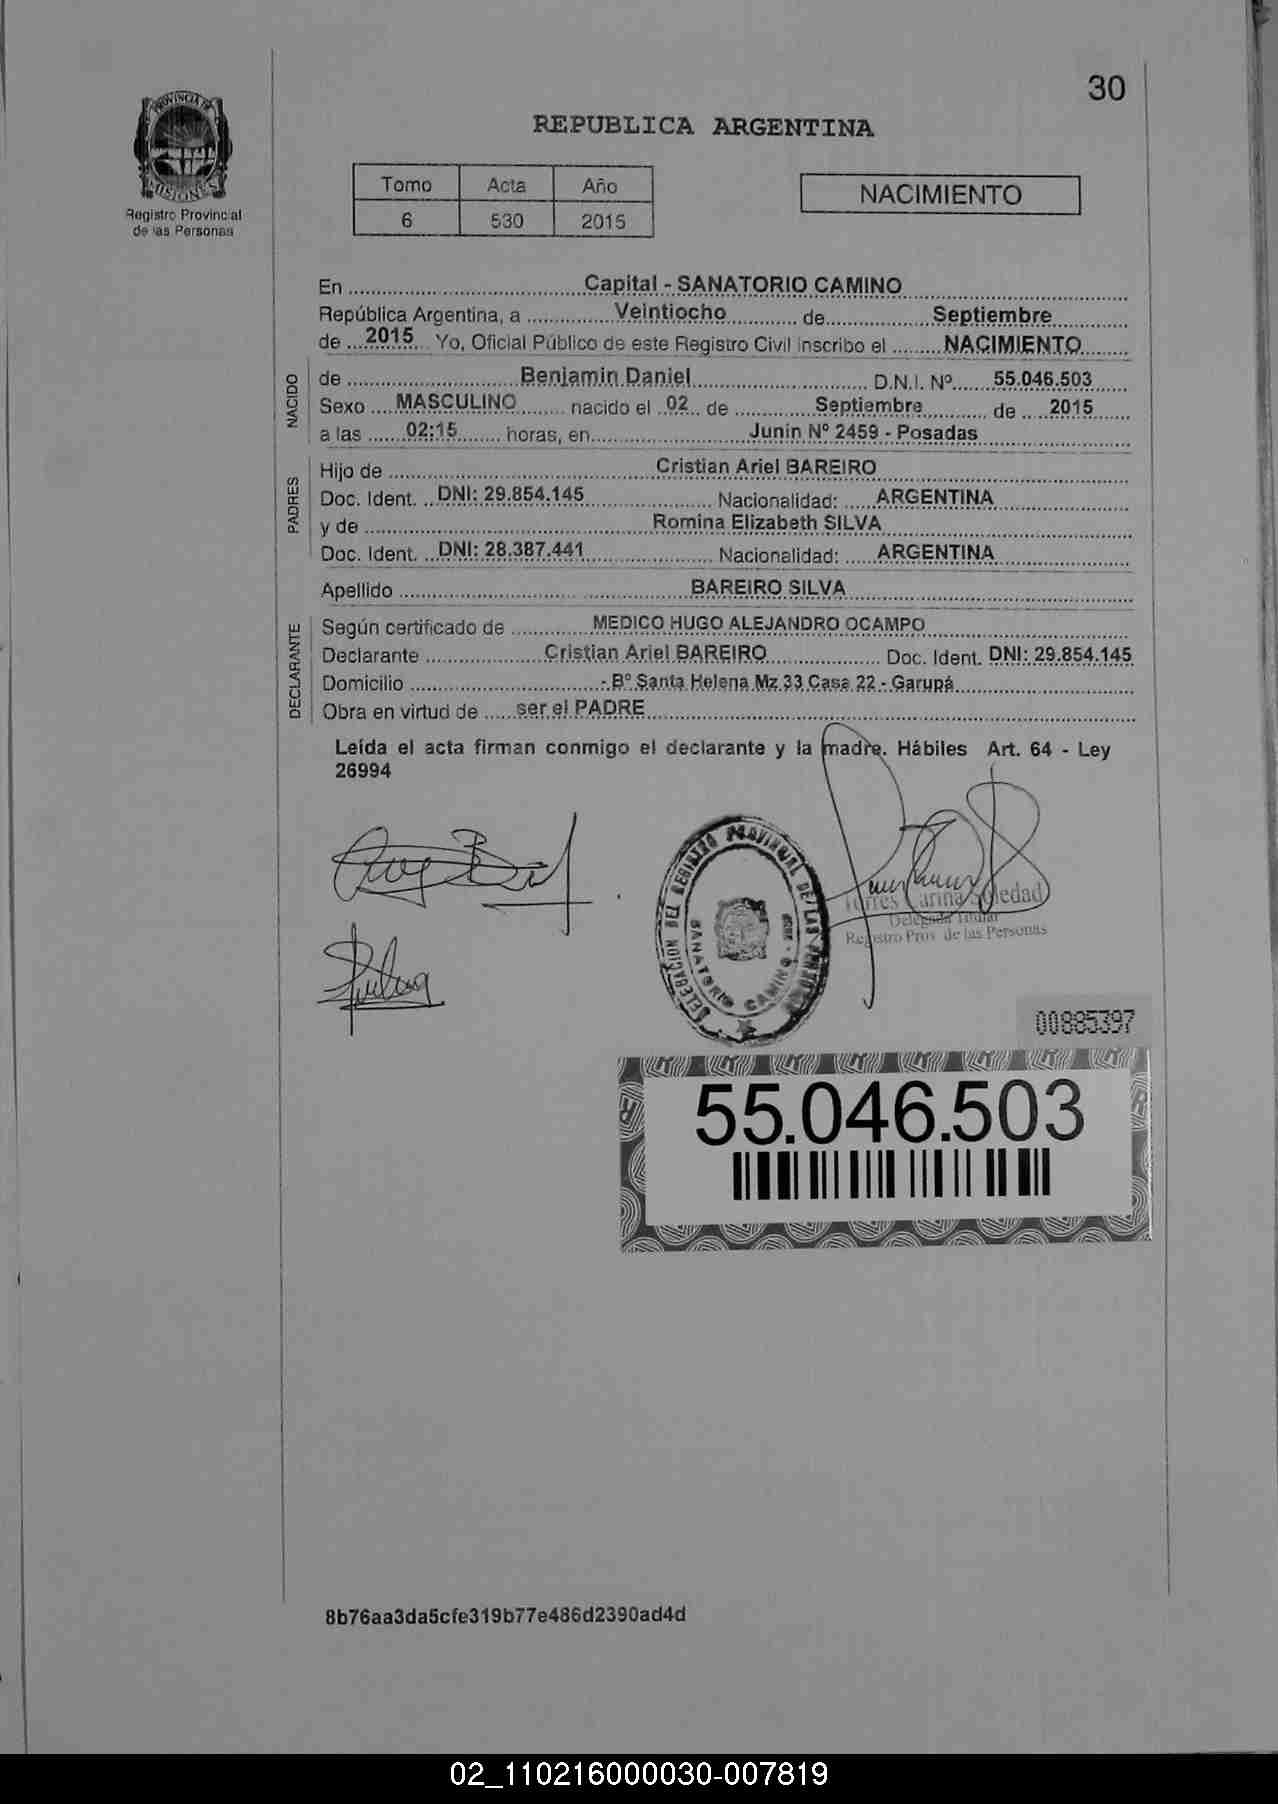 30
PROVINCIA DE
MISIONES
Registro Provincial
de las Personas
REPUBLICA ARGENTINA
Tomo Acta Año
6 530 2015
NACIMIENTO
En Capital - SANATORIO CAMINO
República Argentina, a Veintiocho de Septiembre
de 2015 Yo, Oficial Público de este Registro Civil inscribo el NACIMIENTO
NACIDO
de Benjamin Daniel D.N.I. Nº 55.046.503
Sexo MASCULINO nacido el 02 de Septiembre de 2015
a las 02:15 horas, en Junin Nº 2459 - Posadas
PADRES
Hijo de Cristian Ariel BAREIRO
Doc. Ident. DNI: 29.854.145 Nacionalidad: ARGENTINA
y de Romina Elizabeth SILVA
Doc. Ident. DNI: 28.387.441 Nacionalidad: ARGENTINA
Apellido BAREIRO SILVA
DECLARANTE
Según certificado de MEDICO HUGO ALEJANDRO OCAMPO
Declarante Cristian Ariel BAREIRO Doc. Ident. DNI: 29.854.145
Domicilio - Bº Santa Helena Mz 33 Casa 22 - Garupá
Obra en virtud de ser el PADRE
Leída el acta firman conmigo el declarante y la madre. Hábiles Art. 64 - Ley
26994
DELEGACION DEL REGISTRO PROVINCIAL DE LAS PERSONAS
SANATORIO CAMINO
Torres Carina Soledad
Delegada Titular
Registro Prov. de las Personas
00885397
55.046.503
8b76aa3da5cfe319b77e486d2390ad4d
02_110216000030-007819